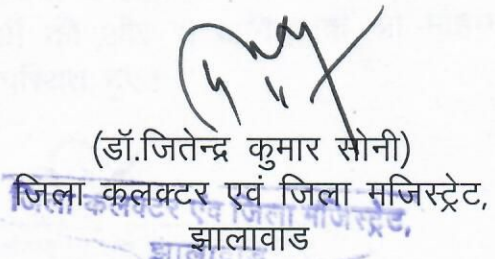 (डॉ.जितेन्द्र कुमार सोनी)
जिला कलक्टर एवं जिला मजिस्ट्रेट,
जिला कलक्टर एवं जिला मजिस्ट्रेट,
झालावाड
झालावाड